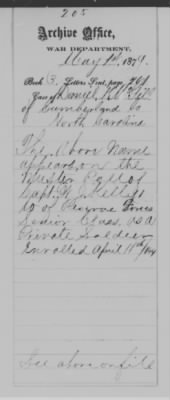 205
Archive Office,
WAR DEPARTMENT.
May 1st, 1879.
Book 3, Letters Sent, page 261
Case of Daniel
of Cumberland Co
North Carolina
The above Name
appears on the
Muster Roll of
Capt.
Co of Reserve Forces
Senior Class, as a
Private Soldier
Enrolled April 18th/64
See above on file